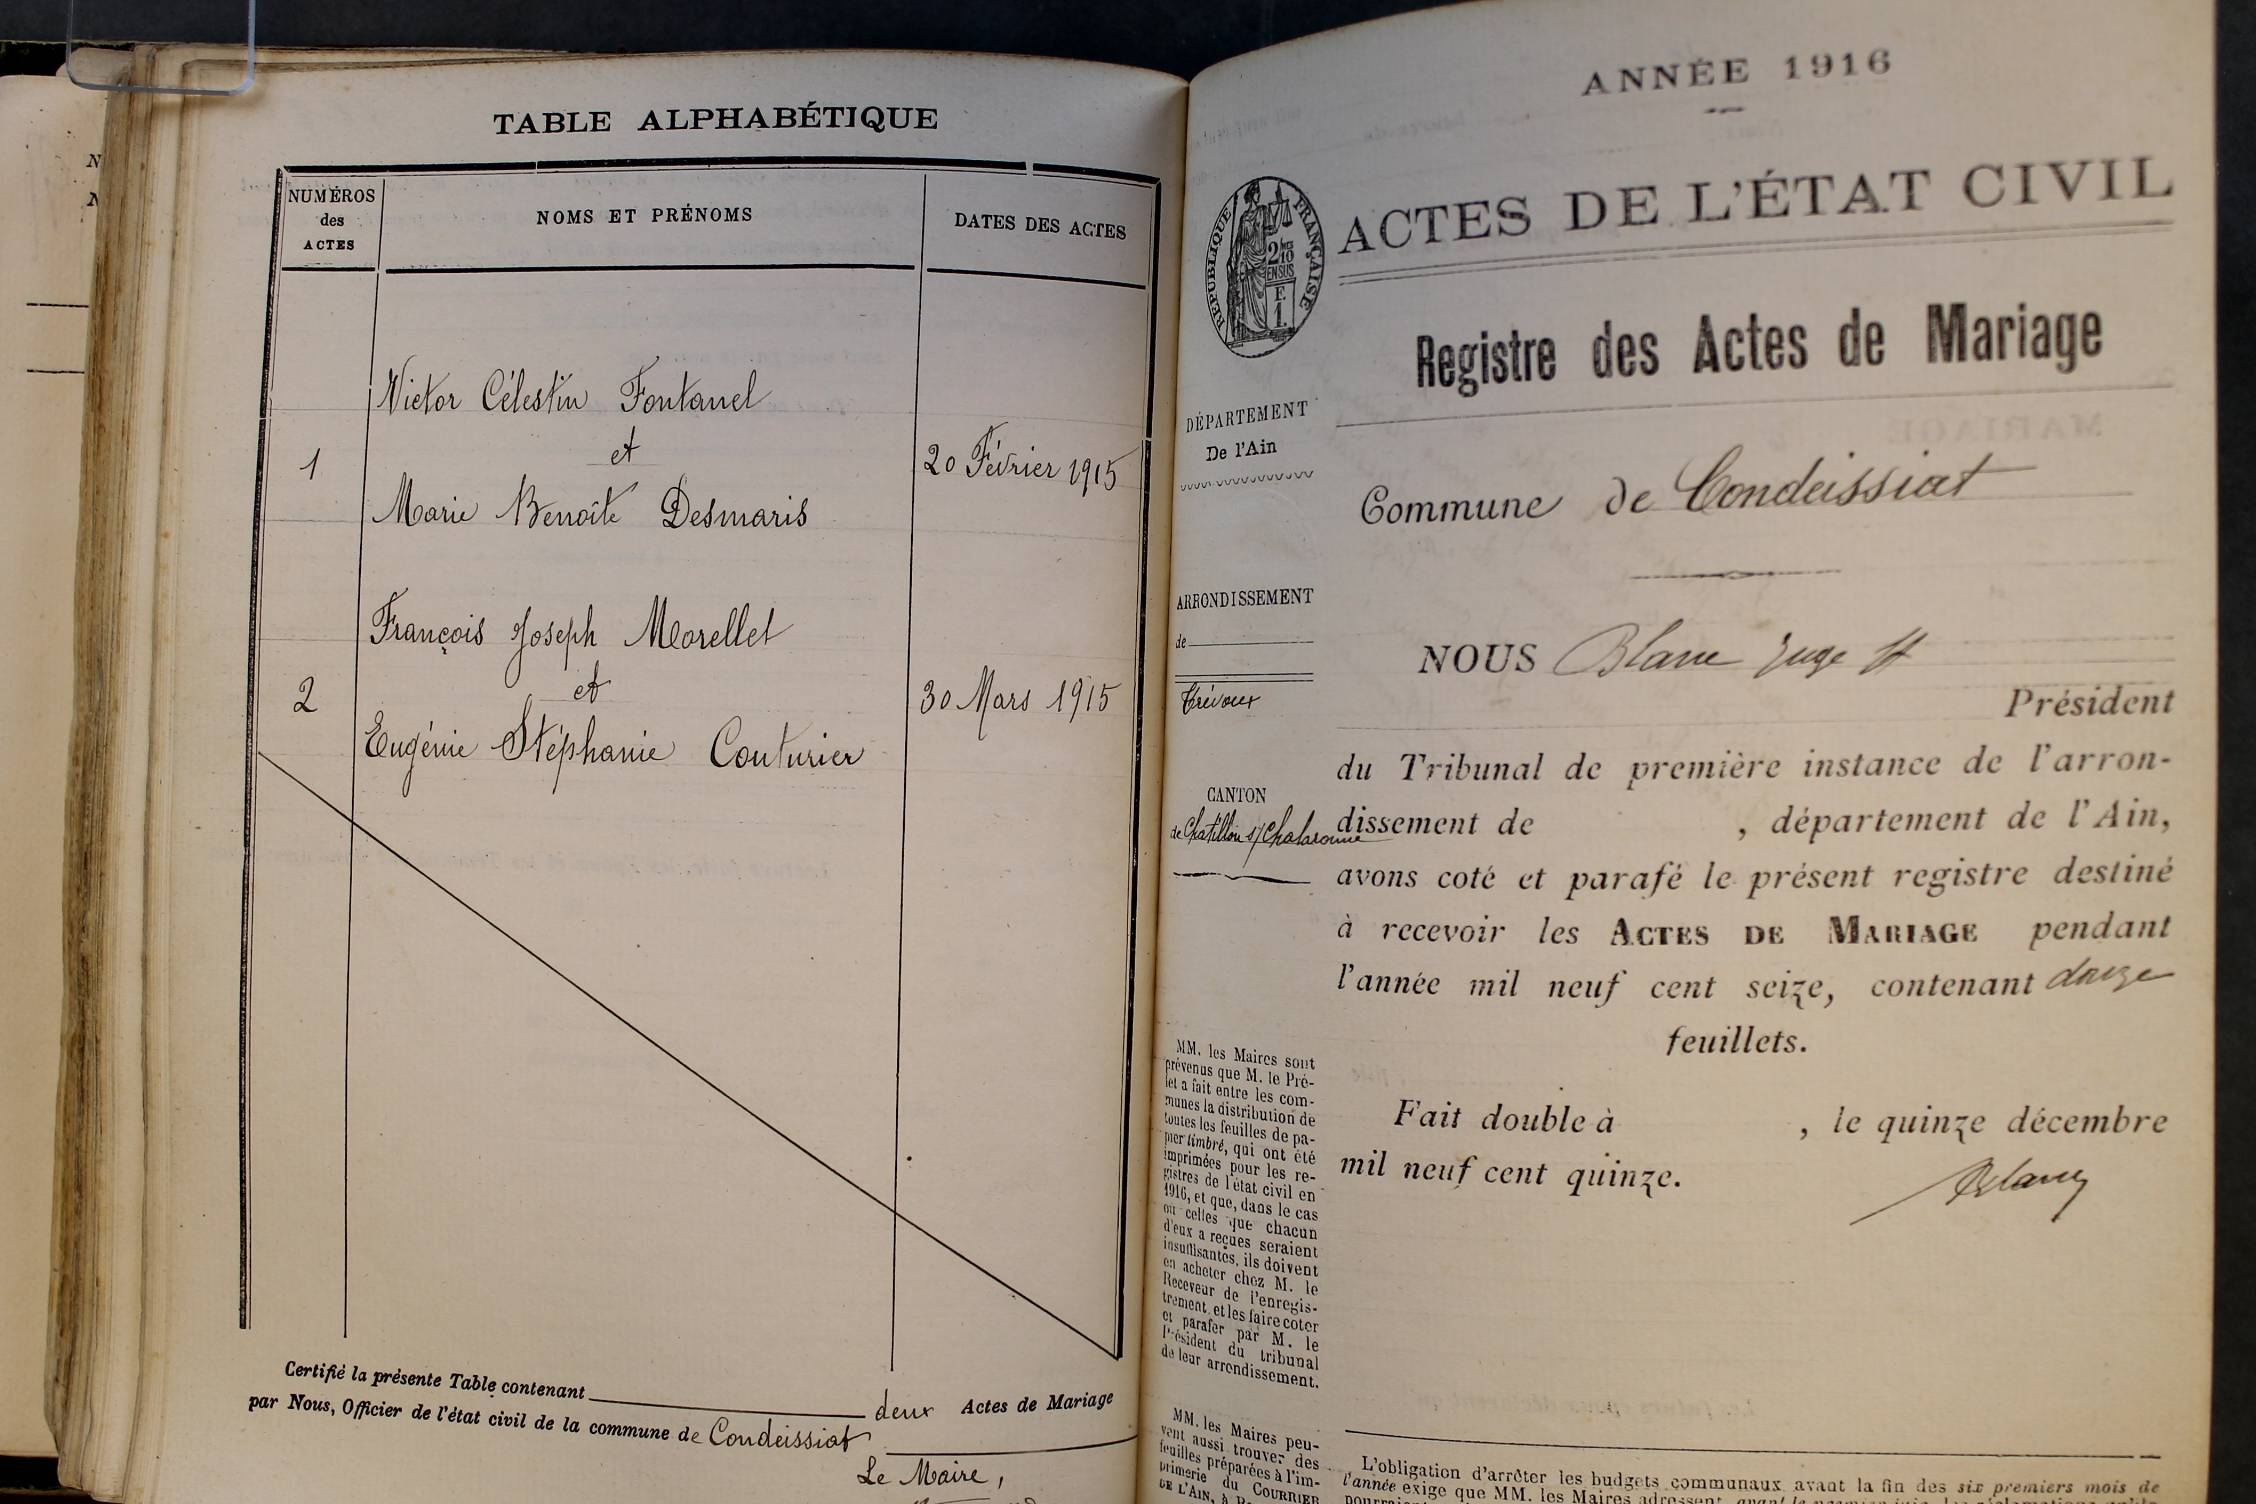 TABLE ALPHABÉTIQUE
NUMÉROS
des
ACTES
NOMS ET PRÉNOMS
DATES DES ACTES
Victor Célestin Fontanel
et
1
20 Février 1915
Marie Benoîte Desmaris
François Joseph Morellet
et
2
30 Mars 1915
Eugénie Stéphanie Couturier
Certifié la présente Table contenant deux Actes de Mariage
par Nous, Officier de l'état civil de la commune de Condeissiat
Le Maire,
ANNÉE 1916
RÉPUBLIQUE FRANÇAISE
ACTES DE L'ÉTAT CIVIL
Registre des Actes de Mariage
DÉPARTEMENT
De l'Ain
Commune de Condeissiat
ARRONDISSEMENT
de
Trévoux
CANTON
de Chatillon s/ Chalaronne
NOUS Blanc Juge
Président
du Tribunal de première instance de l'arron-
dissement de , département de l'Ain,
avons coté et parafé le présent registre destiné
à recevoir les ACTES DE MARIAGE pendant
l'année mil neuf cent seize, contenant douze
feuillets.
Fait double à , le quinze décembre
mil neuf cent quinze.
Blanc
MM. les Maires sont
prévenus que M. le Pré-
fet a fait entre les com-
munes la distribution de
toutes les feuilles de pa-
pier timbré, qui ont été
imprimées pour les re-
gistres de l'état civil en
1916, et que, dans le cas
où celles que chacun
d'eux a reçues seraient
insuffisantes, ils doivent
en acheter chez M. le
Receveur de l'enregis-
trement et les faire coter
et parafer par M. le
Président du tribunal
de leur arrondissement.
MM. les Maires peu-
vent aussi trouver des
feuilles préparées à l'im-
primerie du COURRIER
DE L'AIN, à
L'obligation d'arrêter les budgets communaux avant la fin des six premiers mois de
l'année exige que MM. les Maires adressent,